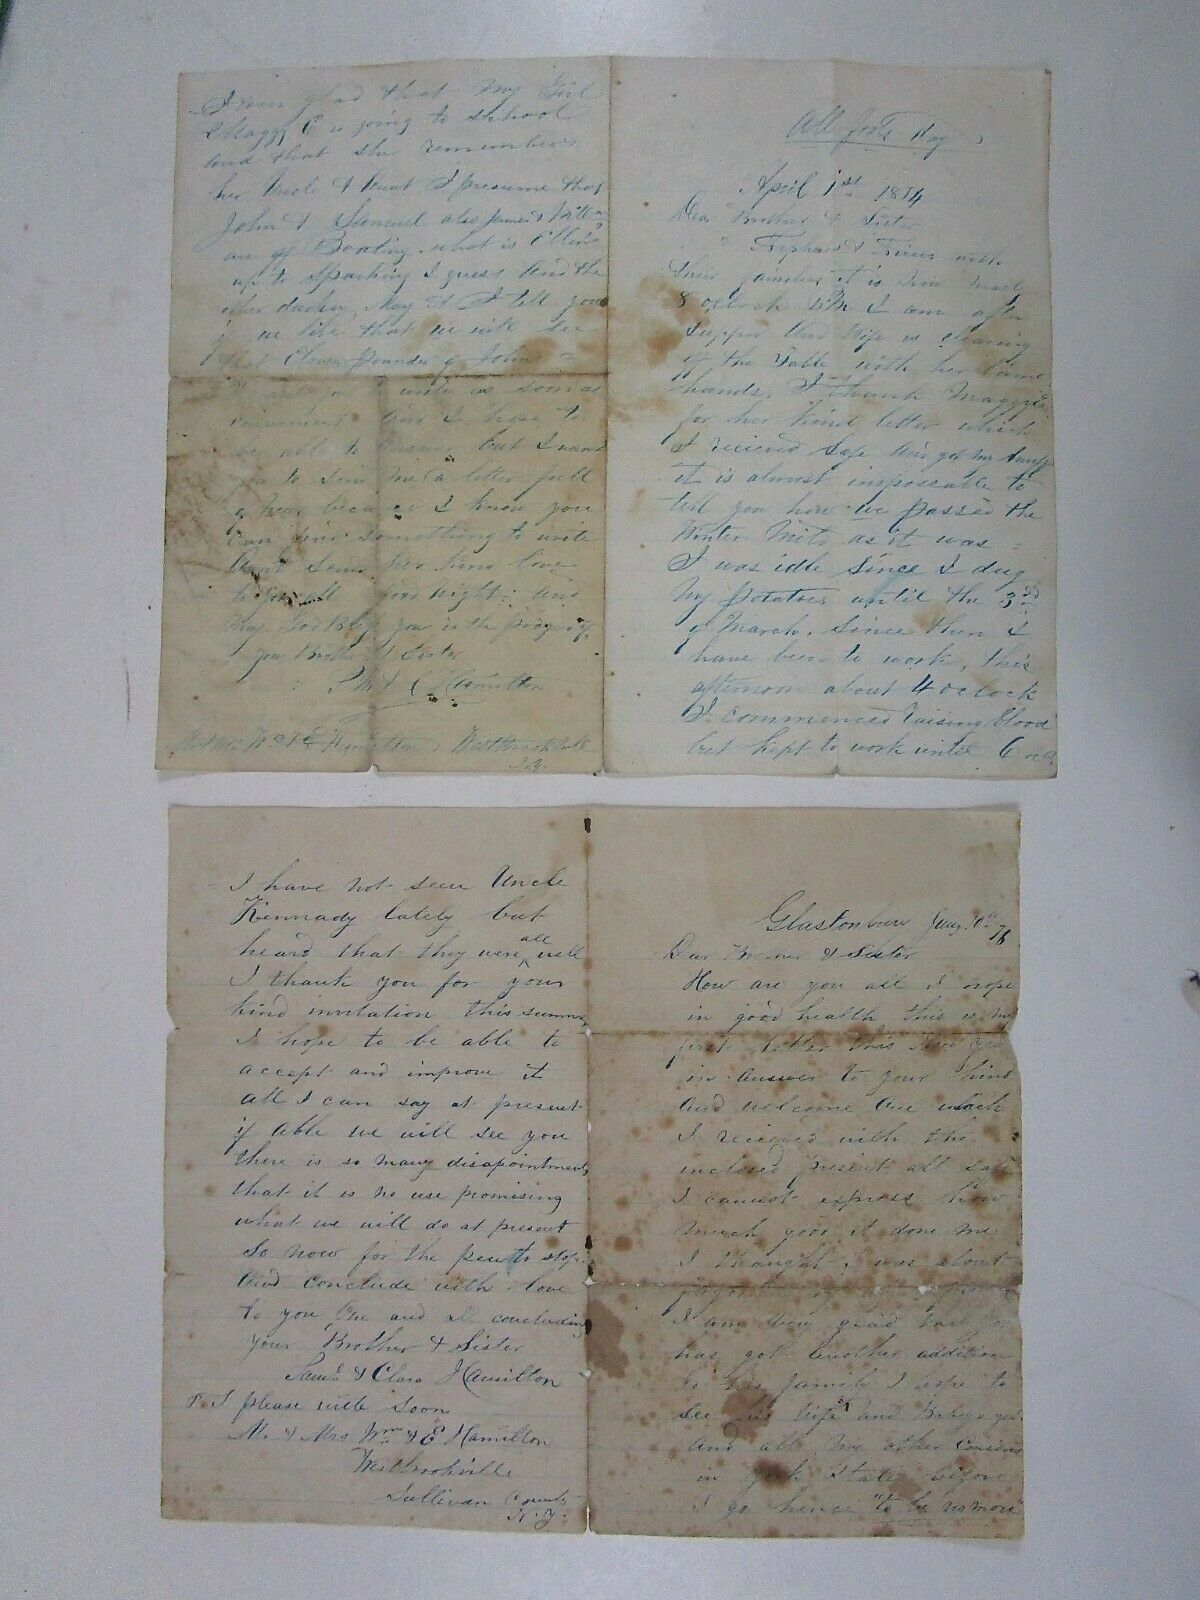 All fools Day
April 1st 1874
Dear Brother & Sister
with
their it is now
8 oclock P.M I am after
supper and Wife is clearing
of the Table with her lame
hands, I thank Maggy
for her kind letter which
I recieved Safe and
it is almost impossable to
tell you how we passed the
Winter Mild as it was
I was idle Since I dug
My potatoes until the 3rd
of March, Since then I
have been to work, this
afternoon about 4 oclock
I commenced raising blood
but kept to work until 6
I am glad that My Girl
Maggy E is going to school
and that she remembers
her Uncle & Aunt I presume that
John & Samuel also James &
are of Boating. what is Ellen
up to Sparking I guess and the
other May & I tell you
if we live that we will see
that Eleven pounder of John
write as soon as
convenient I hope to
be able to but I want
you to Send me a letter full
of News because I know you
can find something to write
Send her kind love
Night and
May God Bless you is the prayer of
your Brother & Sister
S M & C Hamilton
Wm & E Hamilton Westbrookville
N.Y.
Glastonbury 76
Dear Brother & Sister
How are you all I hope
in good health this is my
first letter this New Year
in answer to your kind
and welcome one which
I recieved with the
inclosed present all safe
I cannot express how
much good it done me
I thought I was about
forgotten
I am very glad that
has got another addition
to his family I hope to
see his Wife and Babys yet
and all My other Cousins
in York State before
I go hence "to be no more"
I have not seen Uncle
Kennady lately but
heard that they were all well
I thank you for your
kind invitation this summer
I hope to be able to
accept and improve it
all I can say at present
if able we will see you
there is so many disapointments
that it is no use promising
what we will do at present
So now for the stop
And conclude with love
to you One and all concluding
your Brother & Sister
Saml & Clara Hamilton
P. S please write soon
Mr & Mrs Wm & E Hamilton
Westbrookville
Sullivan County
N. Y.